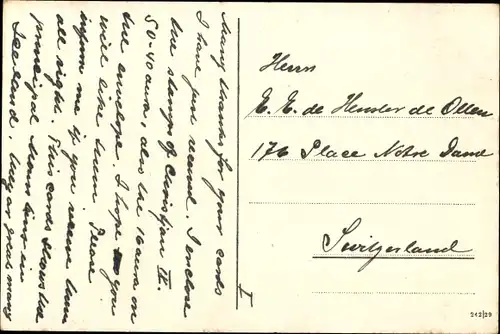 Many thanks for your cards
I have just received. I enclose
the stamps of Christian IX.
50-40 aura, also the 16 aura on
the envelope. I hope you
will like them. Please
inform me if you receive them
all right. This cards shows the
principal town in
Iceland. Very great many
I
Herrn
E. E. de Heusler de Olten
176 Place Notre Dame
Switzerland
242/29